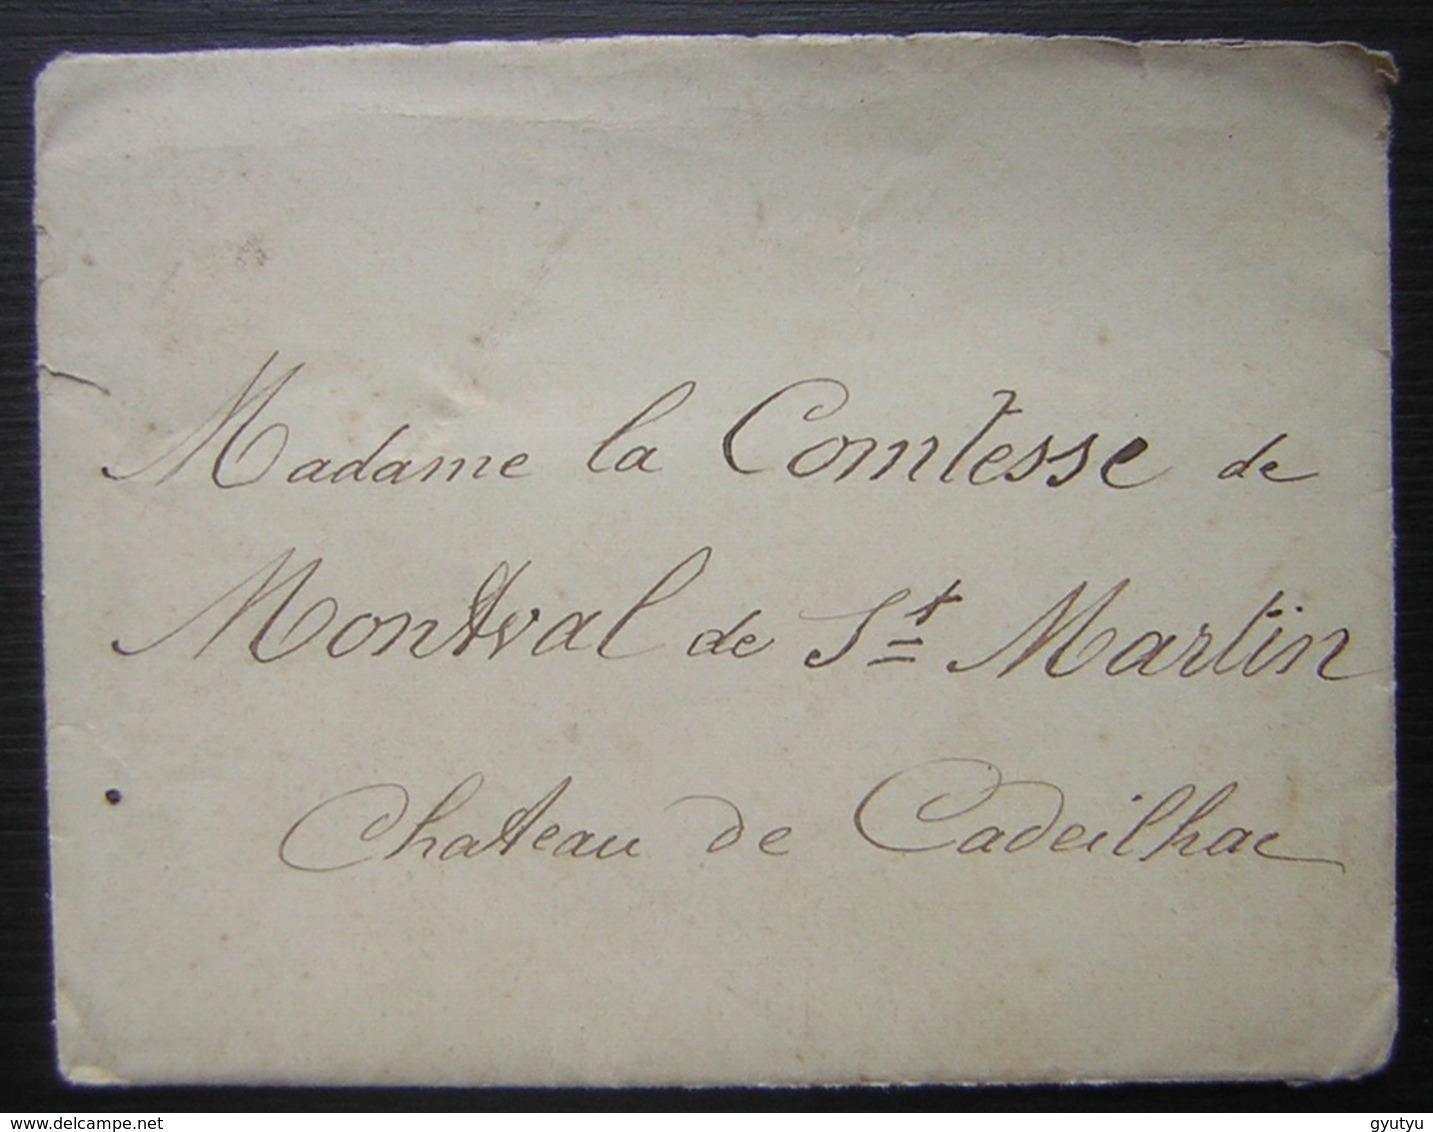 Madame la Comtesse de
Montval de St Martin
Chateau de Cadeilhac
www.delcampe.net
gyutyu